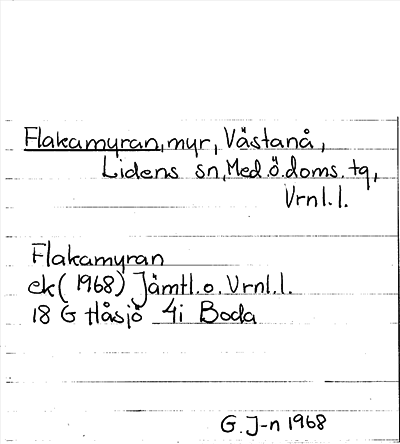 Flakamyran, myr, Västanå,
Lidens sn, Med. ö. doms. tg,
Vrnl. l.
Flakamyran
ek (1968) Jämtl. o. Vrnl. l.
18 G Håsjö 4i Boda
G. J-n 1968